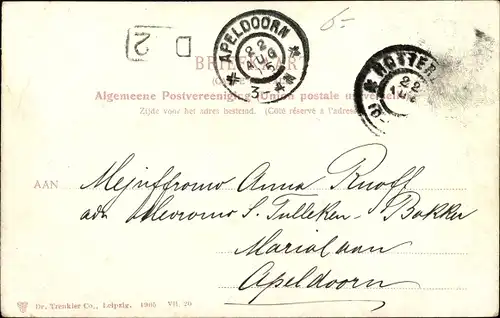 6-
D 2
APELDOORN
22
AUG
05
3-4N
HATTEM
22
BRIEFKAART
Algemeene Postvereeniging (Union postale universelle)
Zijde voor het adres bestemd. (Côté réservé à l'adresse)
AAN
Mejuffrouw Anna Ruoff
adr Mevrouw S. Tulleken-Bakker
Marialaan
Apeldoorn
Dr. Trenkler Co., Leipzig. 1905 VII. 20